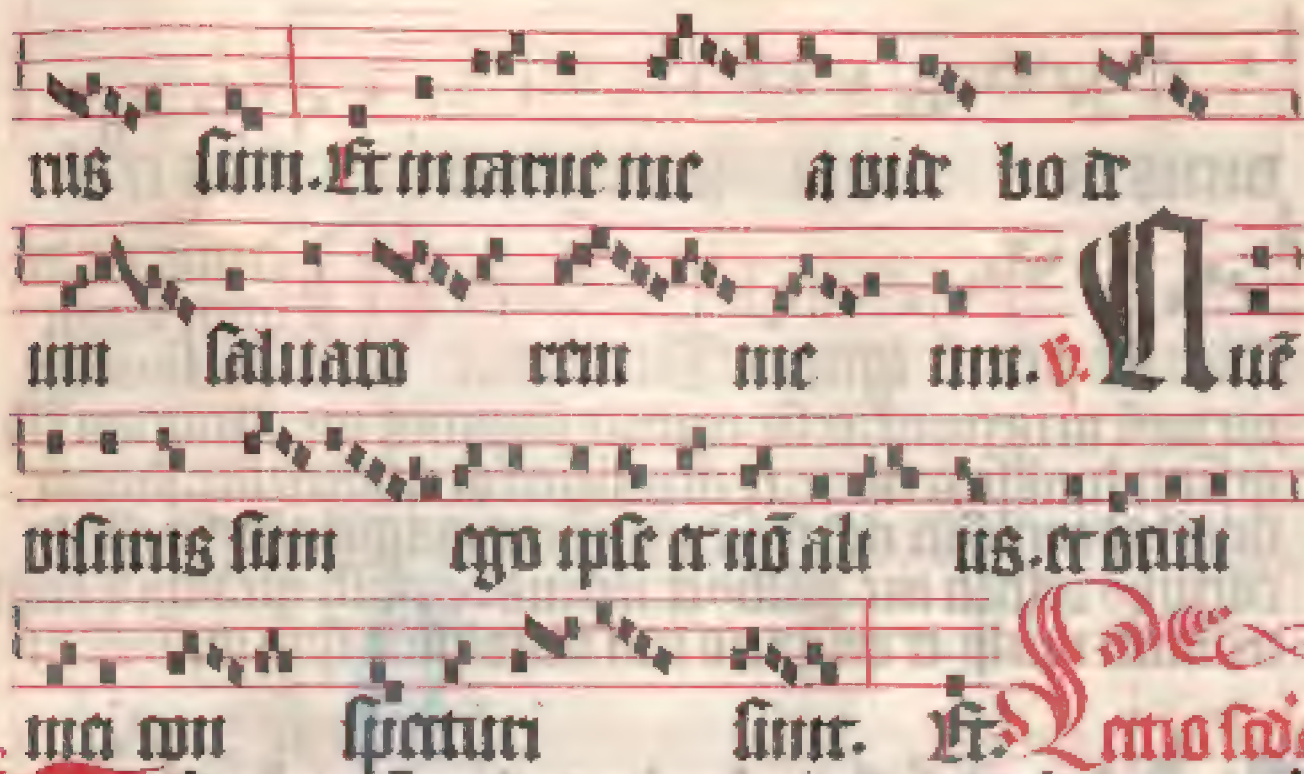 rus sum. Et in carne me a vide bo de
um salvato rem me um. V. Quē
visurus sum ego ipse et nō ali us. et oculi
mei con specturi sunt. Et. Lectio scd̄a